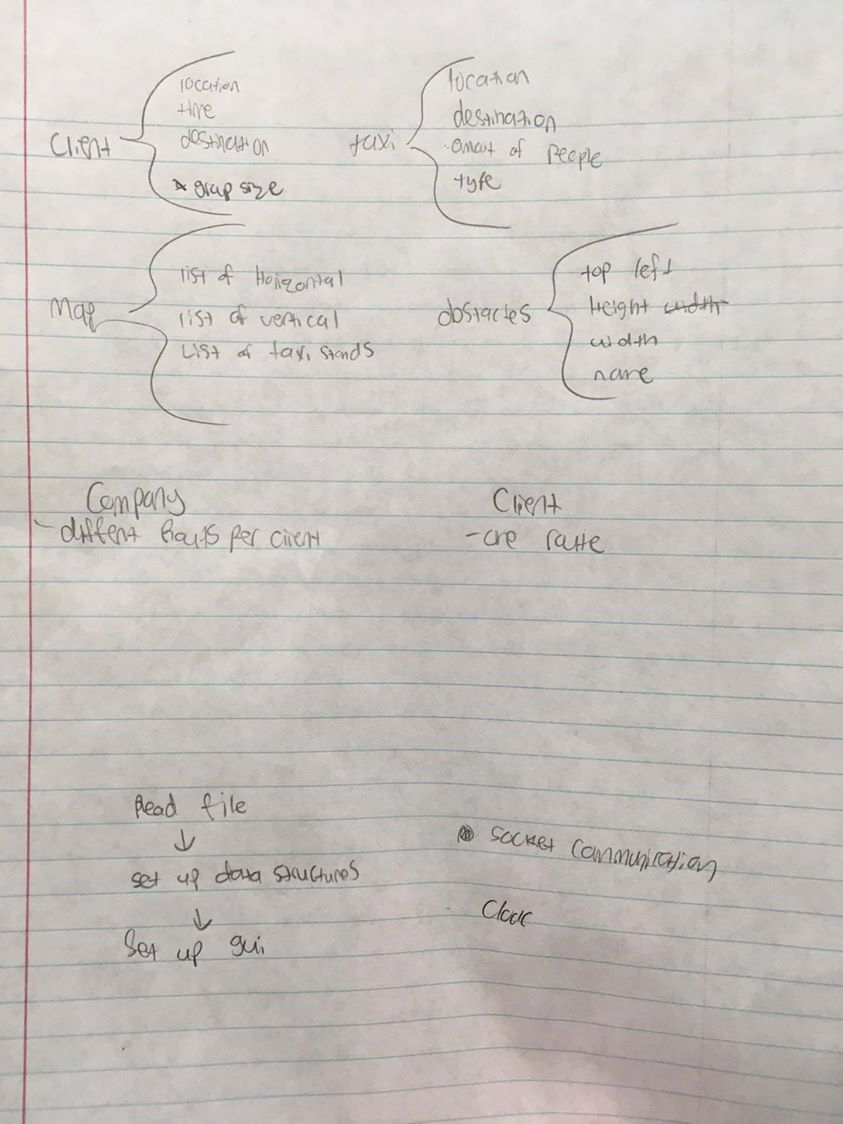 Client
location
time
destination
* group size
taxi
location
destination
amout of people
type
Map
list of Horizontal
list of vertical
List of taxi stands
obstacles
top left
Height width
width
name
Company
- diffent routs per client
Client
- one route
Read file
↓
set up data structures
↓
Set up gui
socket communication
Clock